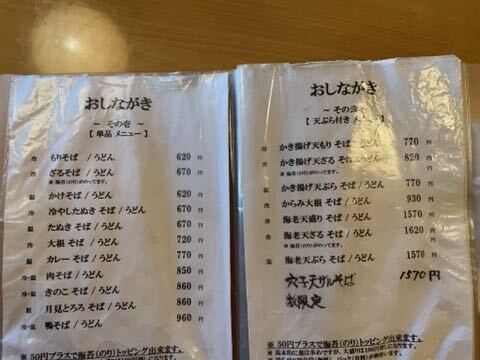 おしながき
～ その壱 ～
【 単品 メニュー 】
冷 もりそば / うどん 620 円
冷 ざるそば / うどん 670 円
※ 海苔(のり)がのってます。
温 かけそば / うどん 620 円
冷 冷やしたぬき そば / うどん 670 円
温 たぬき そば / うどん 670 円
冷 大根 そば / うどん 720 円
温 カレー そば / うどん 770 円
冷・温 肉そば / うどん 850 円
冷・温 きのこ そば / うどん 860 円
冷・温 月見とろろ そば / うどん 860 円
冷・温 鴨そば / うどん 960 円
※ 50円プラスで海苔(のり)トッピング出来ます。
おしながき
～ その弐 ～
【 天ぷら付き メニュー 】
冷 かき揚げ天もり そば / うどん 770 円
冷 かき揚げ天ざる そば / うどん 820 円
※ 海苔(のり)がのってます。
温 かき揚げ天ぷら そば / うどん 770 円
冷 からみ大根 そば / うどん 930 円
冷 海老天盛り そば / うどん 1570 円
冷 海老天ざる そば / うどん 1620 円
※ 海苔(のり)がのってます。
温 海老天ぷら そば / うどん 1570 円
穴子天ザルそば 1570 円
数限定
※ 50円プラスで海苔(のり)トッピング出来ます。